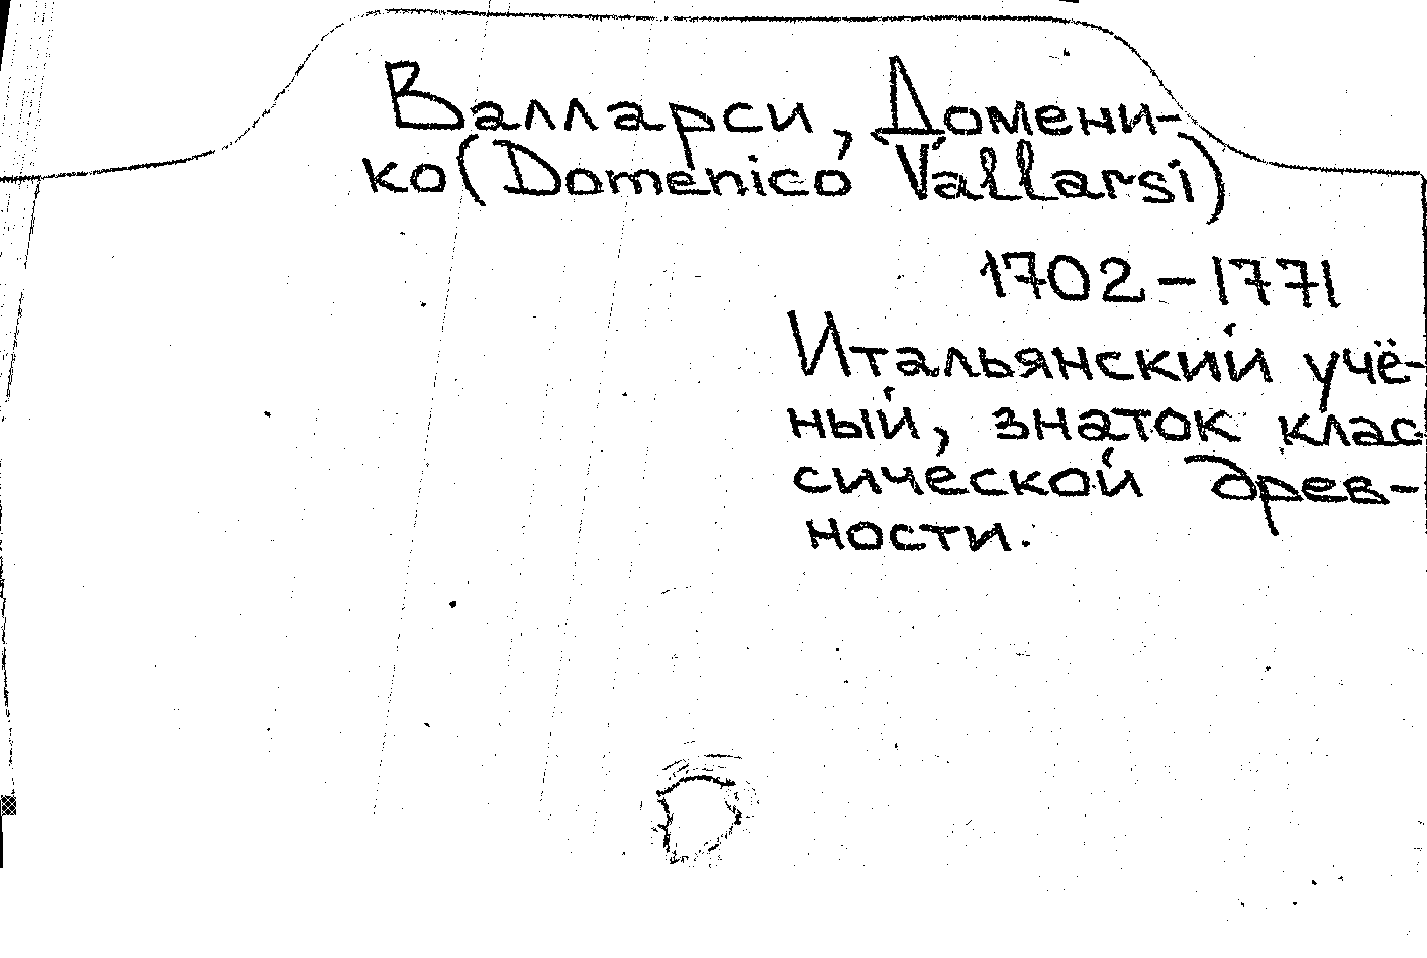 Валларси, Домени-
ко (Domenico Vallarsi)
1702 - 1771
Итальянский учё-
ный, знаток клас-
сической древ-
ности.